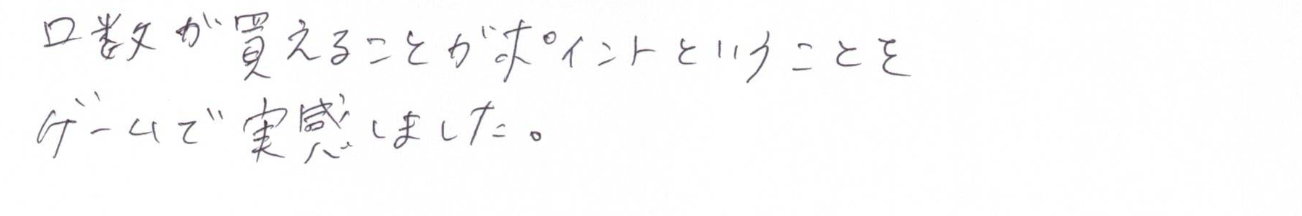 口数が買えることがポイントということを
ゲームで実感しました。